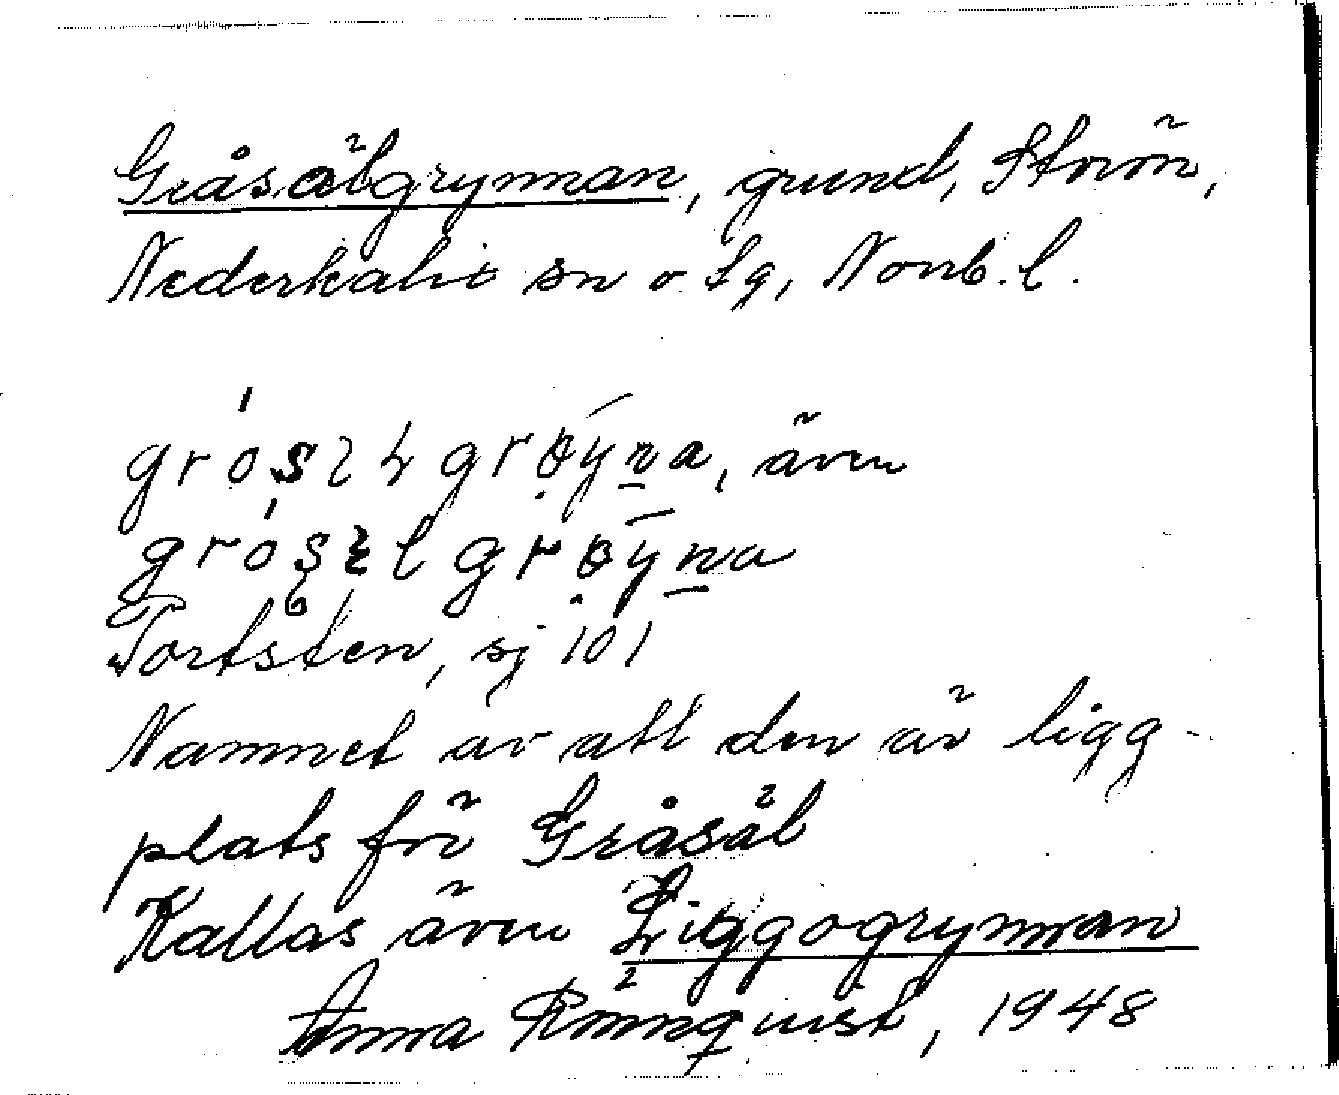 Gråsälgrynnan, grund, Storön,
Nederkalix sn o. sg, Norrb. l.
även
Tortsten, sj 101
Namnet av att den är ligg-
plats för Gråsäl
Kallas även Liggogrynnan
Anna Rönnquist, 1948